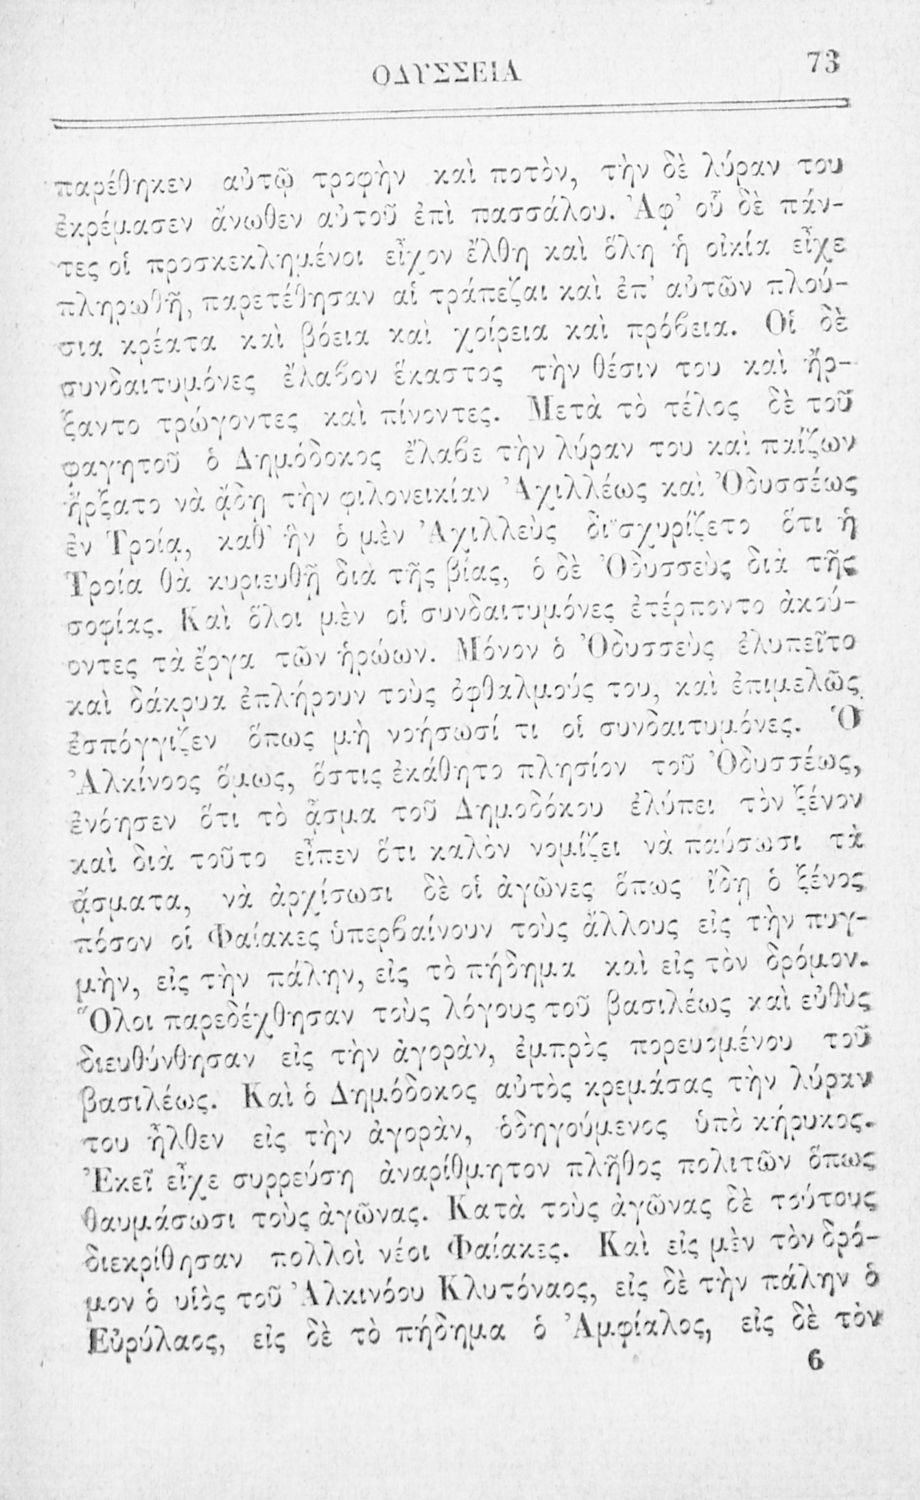 ΟΔΥΣΣΕΙΑ 73
παρέθηκεν αὐτῷ τροφὴν καὶ ποτὸν, τὴν δὲ λύραν του
ἐκρέμασεν ἄνωθεν αὐτοῦ ἐπὶ πασσάλου. Ἀφ’ οὗ δὲ πάν-
τες οἱ προσκεκλημένοι εἶχον ἔλθη καὶ ὅλη ἡ οἰκία εἶχε
πληρωθῆ, παρετέθησαν αἱ τράπεζαι καὶ ἐπ’ αὐτῶν πλού-
σια κρέατα καὶ βόεια καὶ χοίρεια καὶ πρόβεια. Οἱ δὲ
συνδαιτυμόνες ἔλαβον ἕκαστος τὴν θέσιν του καὶ ἤρ-
ξαντο τρώγοντες καὶ πίνοντες. Μετὰ τὸ τέλος δὲ τοῦ
φαγητοῦ ὁ Δημόδοκος ἔλαβε τὴν λύραν του καὶ παίζων
ἤρξατο νὰ ᾄδη τὴν φιλονεικίαν Ἀχιλλέως καὶ Ὀδυσσέως
ἐν Τροίᾳ, καθ’ ἣν ὁ μὲν Ἀχιλλεὺς διϊσχυρίζετο ὅτι ἡ
Τροία θὰ κυριευθῆ διὰ τῆς βίας, ὁ δὲ Ὀδυσσεὺς διὰ τῆς
σοφίας. Καὶ ὅλοι μὲν οἱ συνδαιτυμόνες ἐτέρποντο ἀκού-
οντες τὰ ἔργα τῶν ἡρώων. Μόνον ὁ Ὀδυσσεὺς ἐλυπεῖτο
καὶ δάκρυα ἐπλήρουν τοὺς ὀφθαλμούς του, καὶ ἐπιμελῶς
ἐσπόγγιζεν ὅπως μὴ νοήσωσί τι οἱ συνδαιτυμόνες. Ὁ
Ἀλκίνοος ὅμως, ὅστις ἐκάθητο πλησίον τοῦ Ὀδυσσέως,
ἐνόησεν ὅτι τὸ ᾆσμα τοῦ Δημοδόκου ἐλύπει τὸν ξένον
καὶ διὰ τοῦτο εἶπεν ὅτι καλὸν νομίζει νὰ παύσωσι τὰ
ᾄσματα, νὰ ἀρχίσωσι δὲ οἱ ἀγῶνες ὅπως ἴδη ὁ ξένος
πόσον οἱ Φαίακες ὑπερβαίνουν τοὺς ἄλλους εἰς τὴν πυγ-
μὴν, εἰς τὴν πάλην, εἰς τὸ πήδημα καὶ εἰς τὸν δρόμον.
Ὅλοι παρεδέχθησαν τοὺς λόγους τοῦ βασιλέως καὶ εὐθὺς
διευθύνθησαν εἰς τὴν ἀγορὰν, ἐμπρὸς πορευομένου τοῦ
βασιλέως. Καὶ ὁ Δημόδοκος αὐτὸς κρεμάσας τὴν λύραν
του ἦλθεν εἰς τὴν ἀγορὰν, ὁδηγούμενος ὑπὸ κήρυκος.
Ἐκεῖ εἶχε συρρεύση ἀναρίθμητον πλῆθος πολιτῶν ὅπως
θαυμάσωσι τοὺς ἀγῶνας. Κατὰ τοὺς ἀγῶνας δὲ τούτους
διεκρίθησαν πολλοὶ νέοι Φαίακες. Καὶ εἰς μὲν τὸν δρό-
μον ὁ υἱὸς τοῦ Ἀλκινόου Κλυτόναος, εἰς δὲ τὴν πάλην ὁ
Εὐρύλαος, εἰς δὲ τὸ πήδημα ὁ Ἀμφίαλος, εἰς δὲ τὸν
6